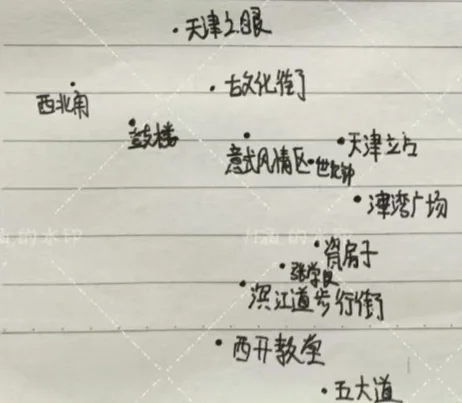 天津之眼
古文化街
西北角
鼓楼
意式风情区
世纪钟
天津立占
津湾广场
瓷房子
张学良
滨江道步行街
西开教堂
五大道